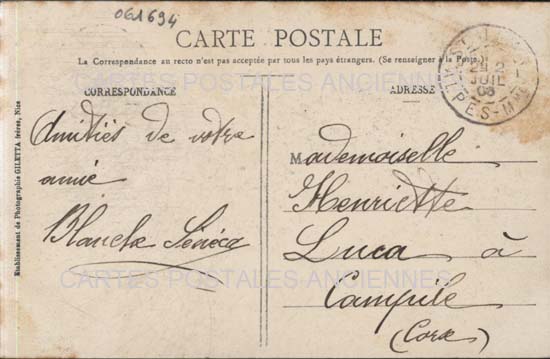 061694
CARTE POSTALE
La Correspondance au recto n'est pas acceptée par tous les pays étrangers. (Se renseigner à la Poste.)
CARTES POSTALES ANCIENNES
CORRESPONDANCE
ADRESSE
Amitiés de votre
amie
Blanche
Mademoiselle
Henriette
Luca à
Campile
(Corse)
CARTES POSTALES ANCIENNES
Etablissement de Photographie GILETTA frères, Nice
ALPES-M